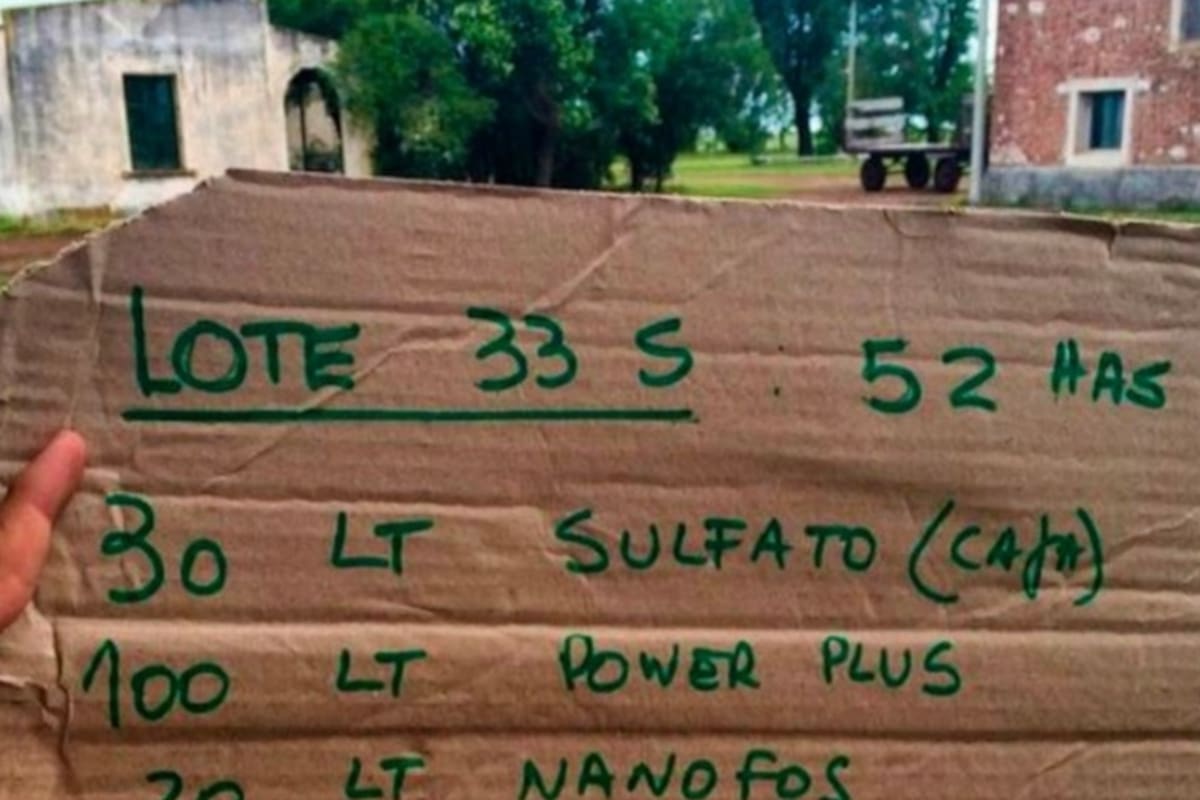 LOTE 33 S . 52 HAS
30 LT SULFATO (CAJA)
100 LT POWER PLUS
LT NANOFOS